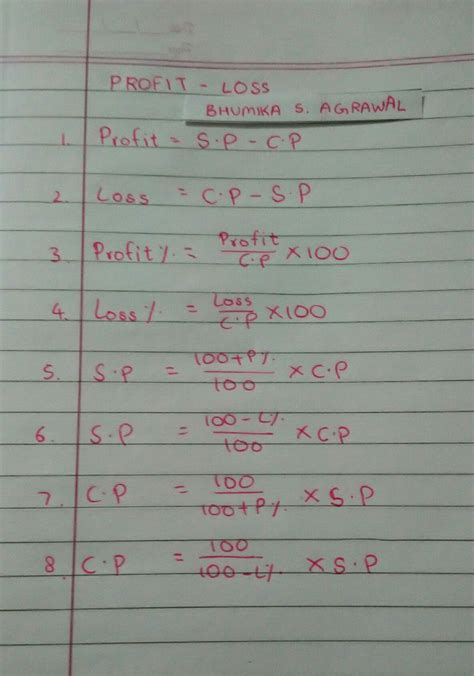 PROFIT - LOSS
BHUMIKA S. AGRAWAL
1. Profit = S.P - C.P
2. Loss = C.P - S.P
3. Profit % = Profit/C.P × 100
4. Loss % = Loss/C.P × 100
5. S.P = 100+P%/100 × C.P
6. S.P = 100-L%/100 × C.P
7. C.P = 100/100+P% × S.P
8. C.P = 100/100-L% × S.P